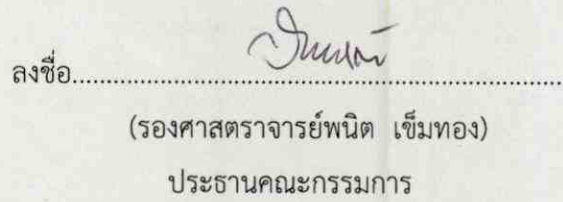 ลงชื่อ................................................................................
(รองศาสตราจารย์พนิต เข็มทอง)
ประธานคณะกรรมการ